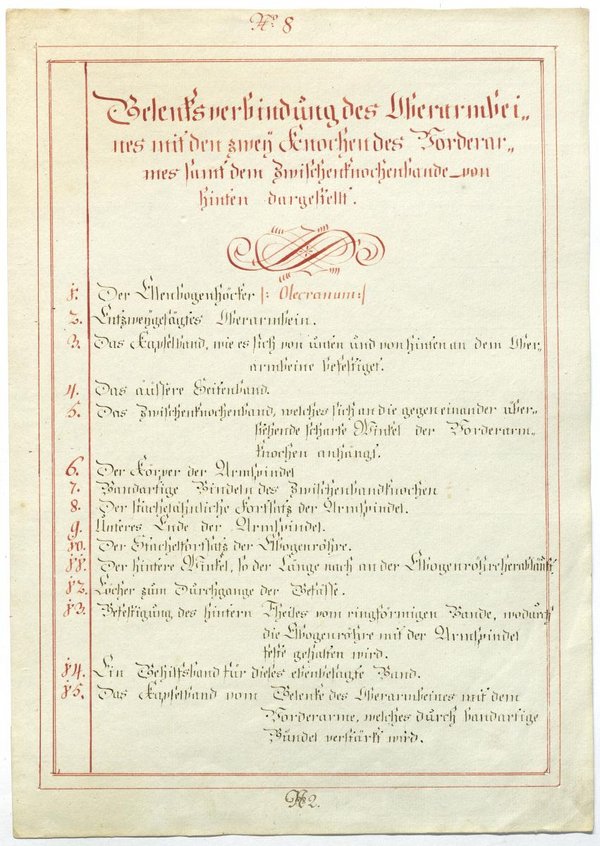 No 8
Gelenksverbindung des Oberarmbei„
nes mit den zweÿ Knochen des Vorderar„
mes samt dem Zwischenknochenbande von
hinten dargestellt.
1. Der Ellenbogenhöcker |: Olecranum :|
2. Entzweygesägtes Oberarmbein.
3. Das Kapselband, wie es sich von innen und von hinten an dem Ober„
armbeine befestiget.
4. Das äussere Seitenband.
5. Das Zwischenknochenband, welches sich an die gegen einander über„
stehende scharfe Winkel der Vorderarm„
knochen anhängt.
6. Der Körper der Armspindel
7. Bandartige Bindeln des Zwischenbandknochen
8. Der stachelähnliche Fortsatz der Armspindel.
9. Unteres Ende der Armspindel.
10. Der Stachelfortsatz der Elbogenröhre.
11. Der hintere Winkel, so der Länge nach an der Elbogenröhre herabläuft.
12. Löcher zum Durchgange der Gefässe.
13. Befestigung des hintern Theiles vom ringförmigen Bande, wodurch
die Elbogenröhre mit der Armspindel
feste gehalten wird.
14. Ein Behilfsband für dieses ebenbesagte Band.
15. Das Kapselband vom Gelenke des Oberarmbeines mit dem
Vorderarme, welches durch bandartige
Bündel verstärkt wird.
No 2.